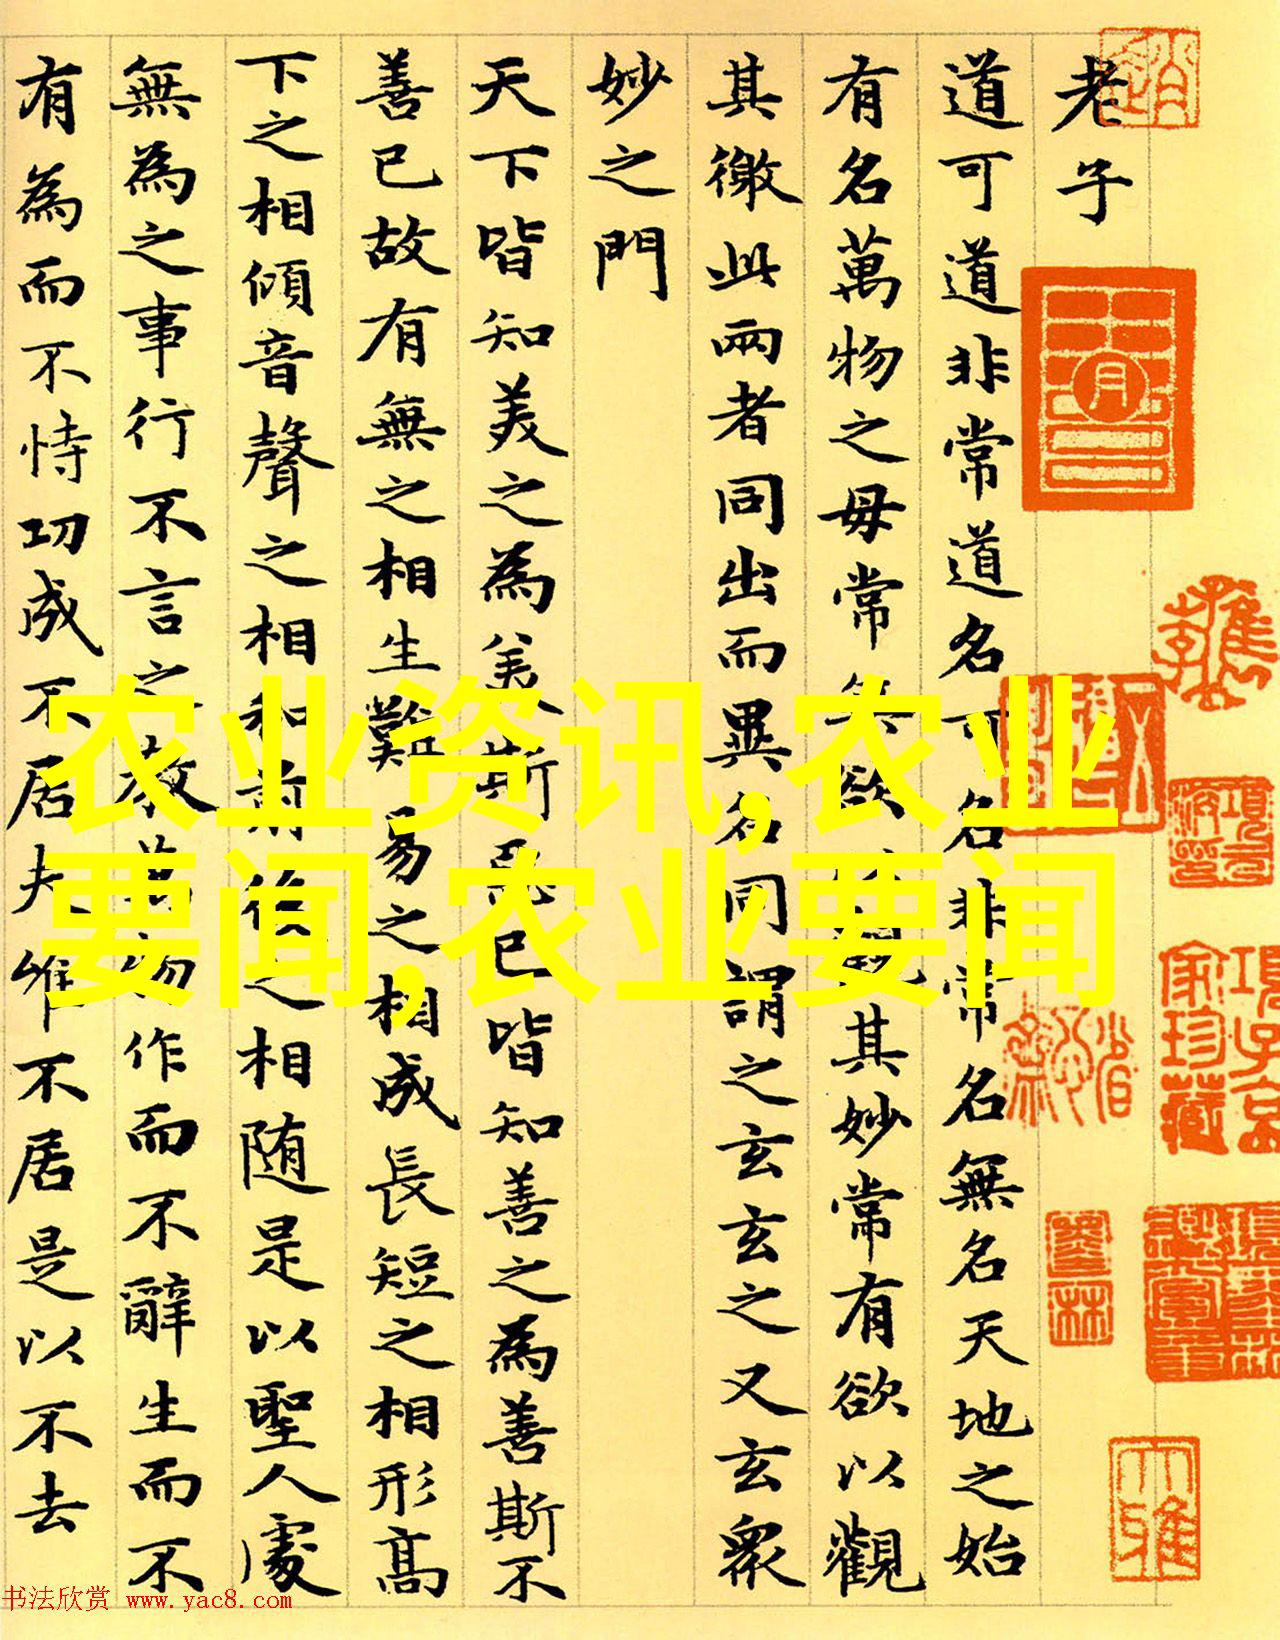 老子
道可道非常道名可名非常名無名天地之始
有名萬物之毋常無欲以觀其妙常有欲以觀
其徼此兩者同出而異名同謂之玄玄之又玄衆
妙之門
天下皆知美之為美斯惡已皆知善之為善斯不
善已故有無之相生難易之相成長短之相形高
下之相傾音聲之相和前後之相随是以聖人處
無為之事行不言之教萬物作而不辭生而不
有為而不恃功成不居夫惟不居是以不去
农业资讯,农业
要闻,农业要闻
項子京
家珍藏
大雅
书法欣赏 www.yac8.com